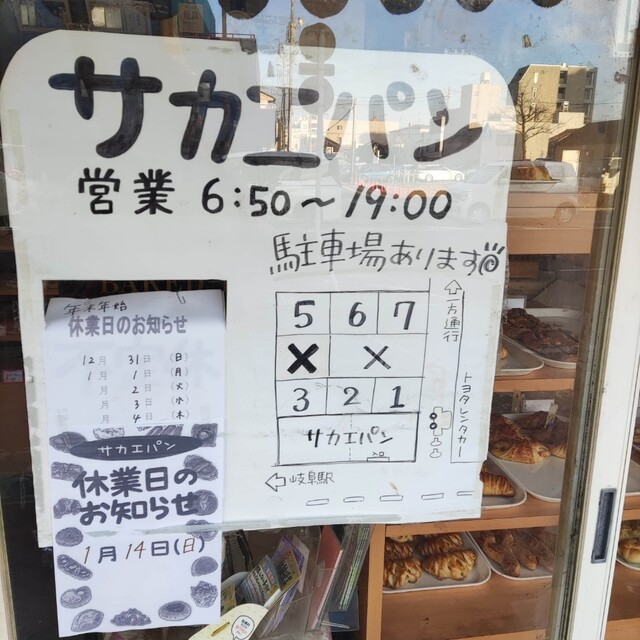 サカエパン
営業 6:50〜19:00
駐車場あります
5 6 7
× ×
3 2 1
サカエパン
入口
⇧一方通行
トヨタレンタカー
⇦岐阜駅
年末年始
休業日のお知らせ
12月 31日 (日)
1月 1日 (月)
月 2日 (火)
月 3日 (水)
月 4日 (木)
サカエパン
休業日の
お知らせ
1月14日(日)